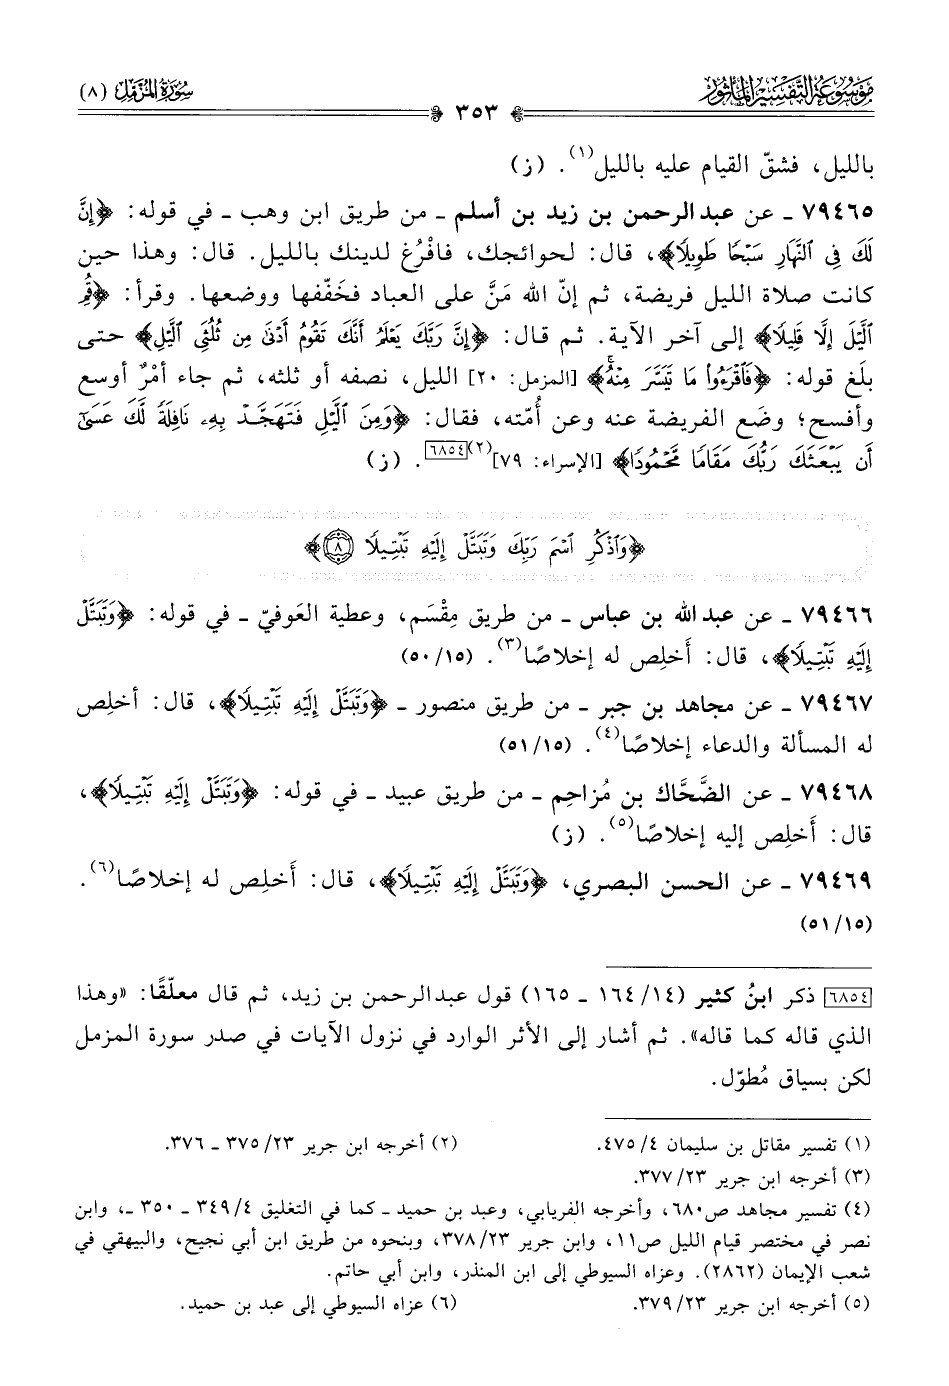 موسوعة التفسير المأثور
سورة المزمل (٨)
٣٥٣
بالليل، فشقّ القيام عليه بالليل(١). (ز)
٧٩٤٦٥ ـ عن عبد الرحمن بن زيد بن أسلم ـ من طريق ابن وهب ـ في قوله: ﴿إِنَّ
لَكَ فِي ٱلنَّهَارِ سَبْحًا طَوِيلًا﴾، قال: لحوائجك، فافْرُغ لدينك بالليل. قال: وهذا حين
كانت صلاة الليل فريضة، ثم إنّ الله مَنَّ على العباد فخَفّفها ووضعها. وقرأ: ﴿قُمِ
ٱلَّيْلَ إِلَّا قَلِيلًا﴾ إلى آخر الآية. ثم قال: ﴿إِنَّ رَبَّكَ يَعْلَمُ أَنَّكَ تَقُومُ أَدْنَىٰ مِن ثُلُثَيِ ٱلَّيْلِ﴾ حتى
بلَغ قوله: ﴿فَٱقْرَءُوا۟ مَا تَيَسَّرَ مِنْهُ﴾ [المزمل: ٢٠] الليل، نصفه أو ثلثه، ثم جاء أمْرٌ أوسع
وأفسح؛ وضَع الفريضة عنه وعن أُمّته، فقال: ﴿وَمِنَ ٱلَّيْلِ فَتَهَجَّدْ بِهِۦ نَافِلَةً لَّكَ عَسَىٰٓ
أَن يَبْعَثَكَ رَبُّكَ مَقَامًا مَّحْمُودًا﴾ [الإسراء: ٧٩](٢)[٦٨٥٤]. (ز)
﴿وَٱذْكُرِ ٱسْمَ رَبِّكَ وَتَبَتَّلْ إِلَيْهِ تَبْتِيلًا ٨﴾
٧٩٤٦٦ ـ عن عبد الله بن عباس ـ من طريق مِقْسَم، وعطية العَوفيّ ـ في قوله: ﴿وَتَبَتَّلْ
إِلَيْهِ تَبْتِيلًا﴾، قال: أَخلِص له إخلاصًا(٣). (١٥/ ٥٠)
٧٩٤٦٧ ـ عن مجاهد بن جبر ـ من طريق منصور ـ ﴿وَتَبَتَّلْ إِلَيْهِ تَبْتِيلًا﴾، قال: أخلِص
له المسألة والدعاء إخلاصًا(٤). (١٥/ ٥١)
٧٩٤٦٨ ـ عن الضَّحَّاك بن مُزاحِم ـ من طريق عبيد ـ في قوله: ﴿وَتَبَتَّلْ إِلَيْهِ تَبْتِيلًا﴾،
قال: أَخلِص إليه إخلاصًا(٥). (ز)
٧٩٤٦٩ ـ عن الحسن البصري، ﴿وَتَبَتَّلْ إِلَيْهِ تَبْتِيلًا﴾، قال: أَخلِص له إخلاصًا(٦).
(١٥/ ٥١)
[٦٨٥٤] ذكر ابنُ كثير (١٤/ ١٦٤ ـ ١٦٥) قول عبد الرحمن بن زيد، ثم قال معلّقًا: «وهذا
الذي قاله كما قاله». ثم أشار إلى الأثر الوارد في نزول الآيات في صدر سورة المزمل
لكن بسياق مُطوّل.
(١) تفسير مقاتل بن سليمان ٤/ ٤٧٥. (٢) أخرجه ابن جرير ٢٣/ ٣٧٥ ـ ٣٧٦.
(٣) أخرجه ابن جرير ٢٣/ ٣٧٧.
(٤) تفسير مجاهد ص٦٨٠، وأخرجه الفريابي، وعبد بن حميد ـ كما في التغليق ٤/ ٣٤٩ ـ ٣٥٠ ـ، وابن
نصر في مختصر قيام الليل ص١١، وابن جرير ٢٣/ ٣٧٨، وبنحوه من طريق ابن أبي نجيح، والبيهقي في
شعب الإيمان (٢٨٦٢). وعزاه السيوطي إلى ابن المنذر، وابن أبي حاتم.
(٥) أخرجه ابن جرير ٢٣/ ٣٧٩. (٦) عزاه السيوطي إلى عبد بن حميد.